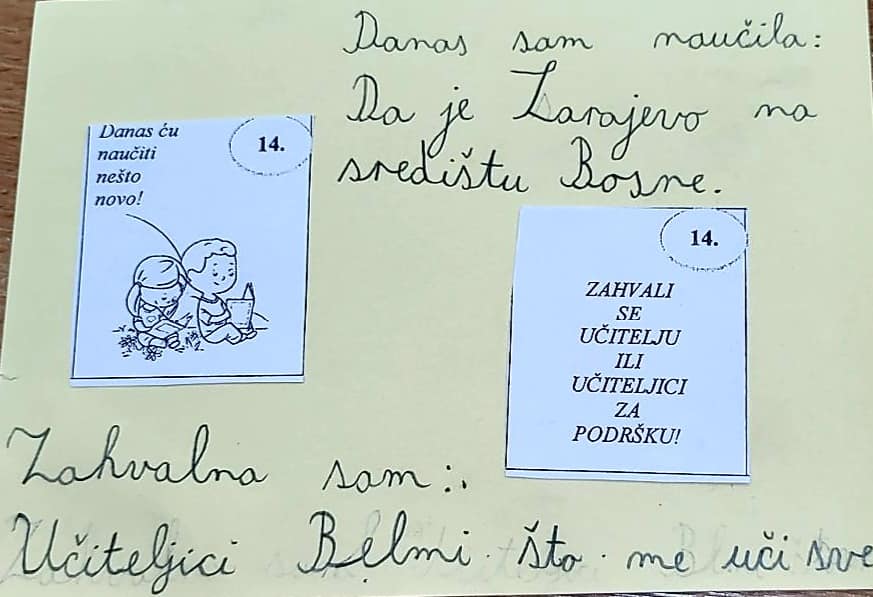 Danas sam naučila:
Da je Sarajevo na
središtu Bosne.
Danas ću
naučiti
nešto
novo!
14.
14.
ZAHVALI
SE
UČITELJU
ILI
UČITELJICI
ZA
PODRŠKU!
Zahvalna sam:.
Učiteljici Belmi što me uči sve